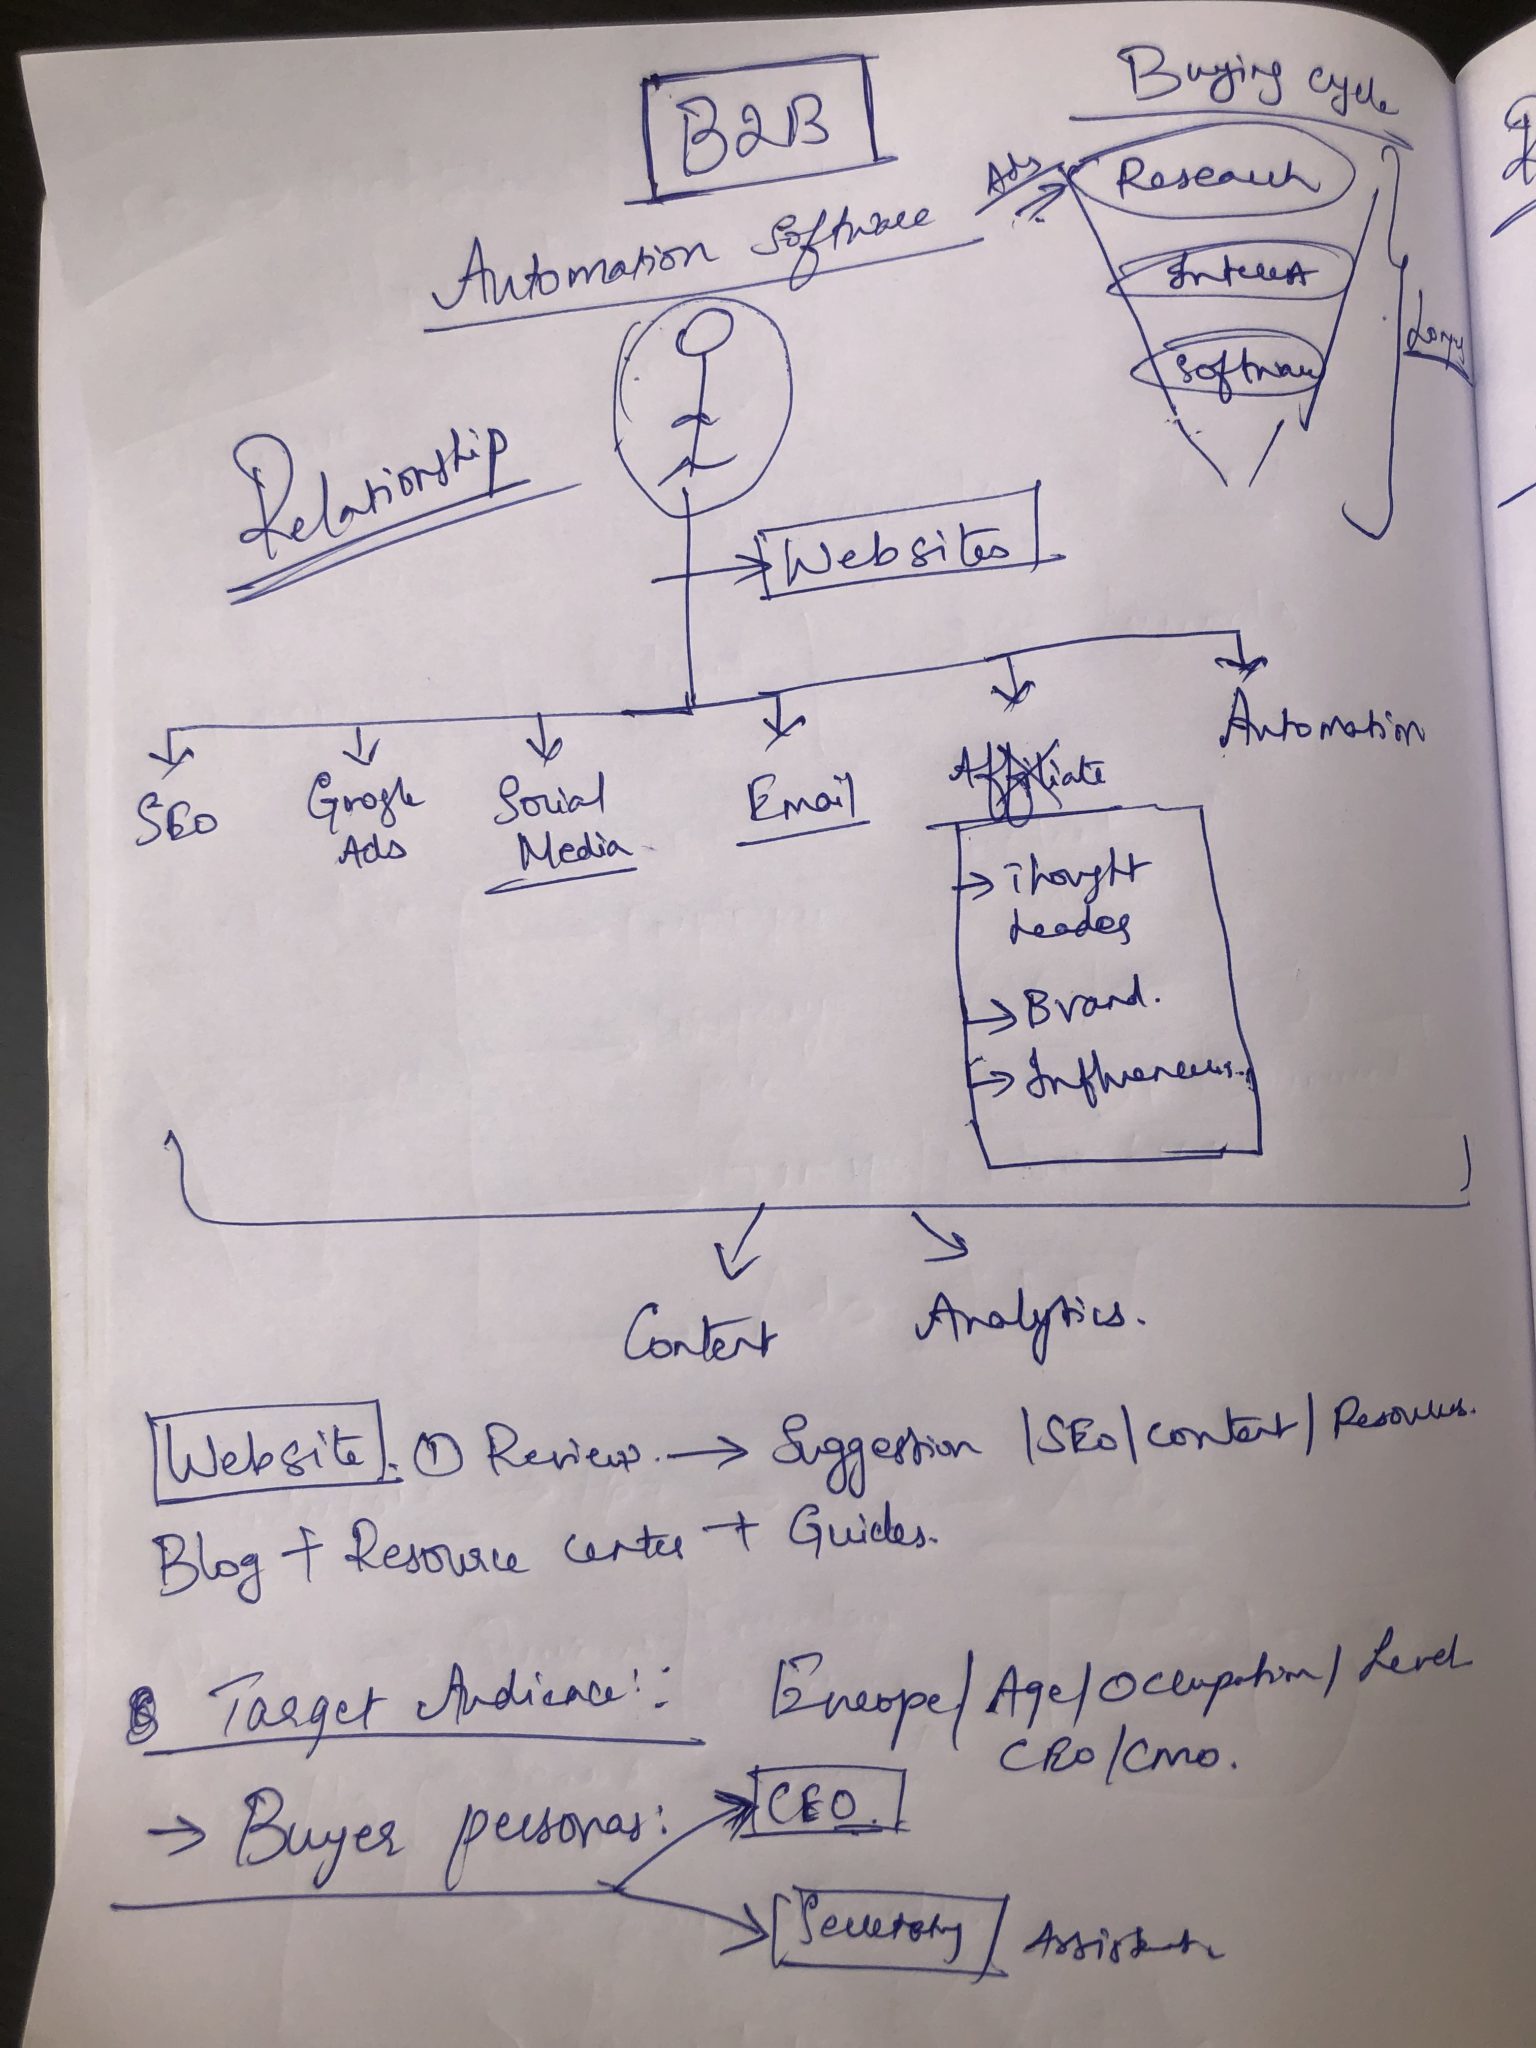 B2B
Buying cycle
Ads
Research
Automation Software
Interest
Software
Long
Relationship
Websites
SEO
Google
Ads
Social
Media
Email
Affiliate
Automation
→ Thought
Leader
→ Brand.
→ Influencers.
Content
Analytics.
Website. ① Review. → Suggestion /SEO/content/Resources.
Blog + Resource center + Guides.
Target Audience:
Europe/Age/Occupation/Level
CEO/CMO.
→ Buyer personas:
CEO.
Secretary